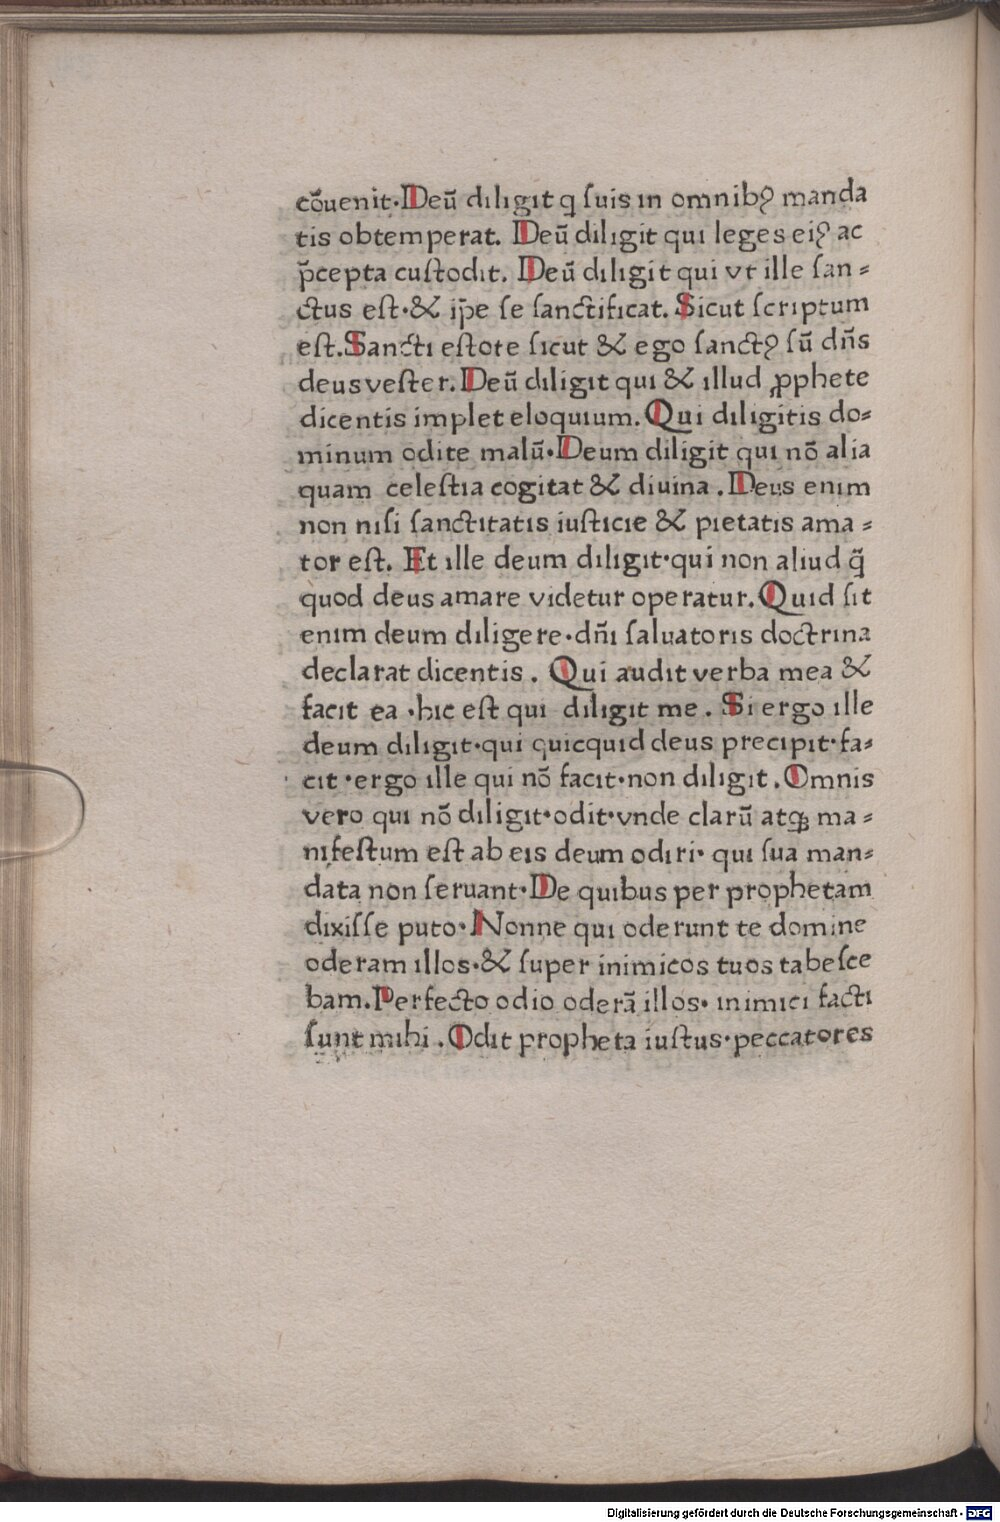 cōuenit·Deū diligit q̨ ſuis in omnibꝰ manda
tis obtemperat. Deū diligit qui leges eiꝰ ac
p̄cepta cuſtodit. Deū diligit qui vt ille ſan⸗
ctus eſt·& ip̄e ſe ſanctificat. Sicut ſcriptum
eſt.Sancti eſtote ſicut & ego ſanctꝰ ſū dn̄s
deus veſter. Deū diligit qui & illud ꝓphete
dicentis implet eloquium. Qui diligitis do⸗
minum odite malū·Deum diligit qui nō alia
quam celeſtia cogitat & diuina . Deus enim
non niſi ſanctitatis iuſticie & pietatis ama⸗
tor eſt. Et ille deum diligit·qui non aliud q̄
quod deus amare videtur operatur. Quid ſit
enim deum diligere·dn̄i ſaluatoris doctrina
declarat dicentis . Qui audit verba mea &
facit ea ·hic eſt qui diligit me . Si ergo ille
deum diligit·qui quicquid deus precipit·fa⸗
cit ·ergo ille qui nō facit·non diligit . Omnis
vero qui nō diligit·odit·vnde clarū atqꝫ ma⸗
nifeſtum eſt ab eis deum odiri· qui ſua man⸗
data non ſeruant·De quibus per prophetam
dixiſſe puto· Nonne qui oderunt te domine
oderam illos·& ſuper inimicos tuos tabeſce
bam.Perfecto odio oderā illos· inimici facti
ſunt mihi . Odit propheta iuſtus·peccatores
Digitalisierung gefördert durch die Deutsche Forschungsgemeinschaft - DFG